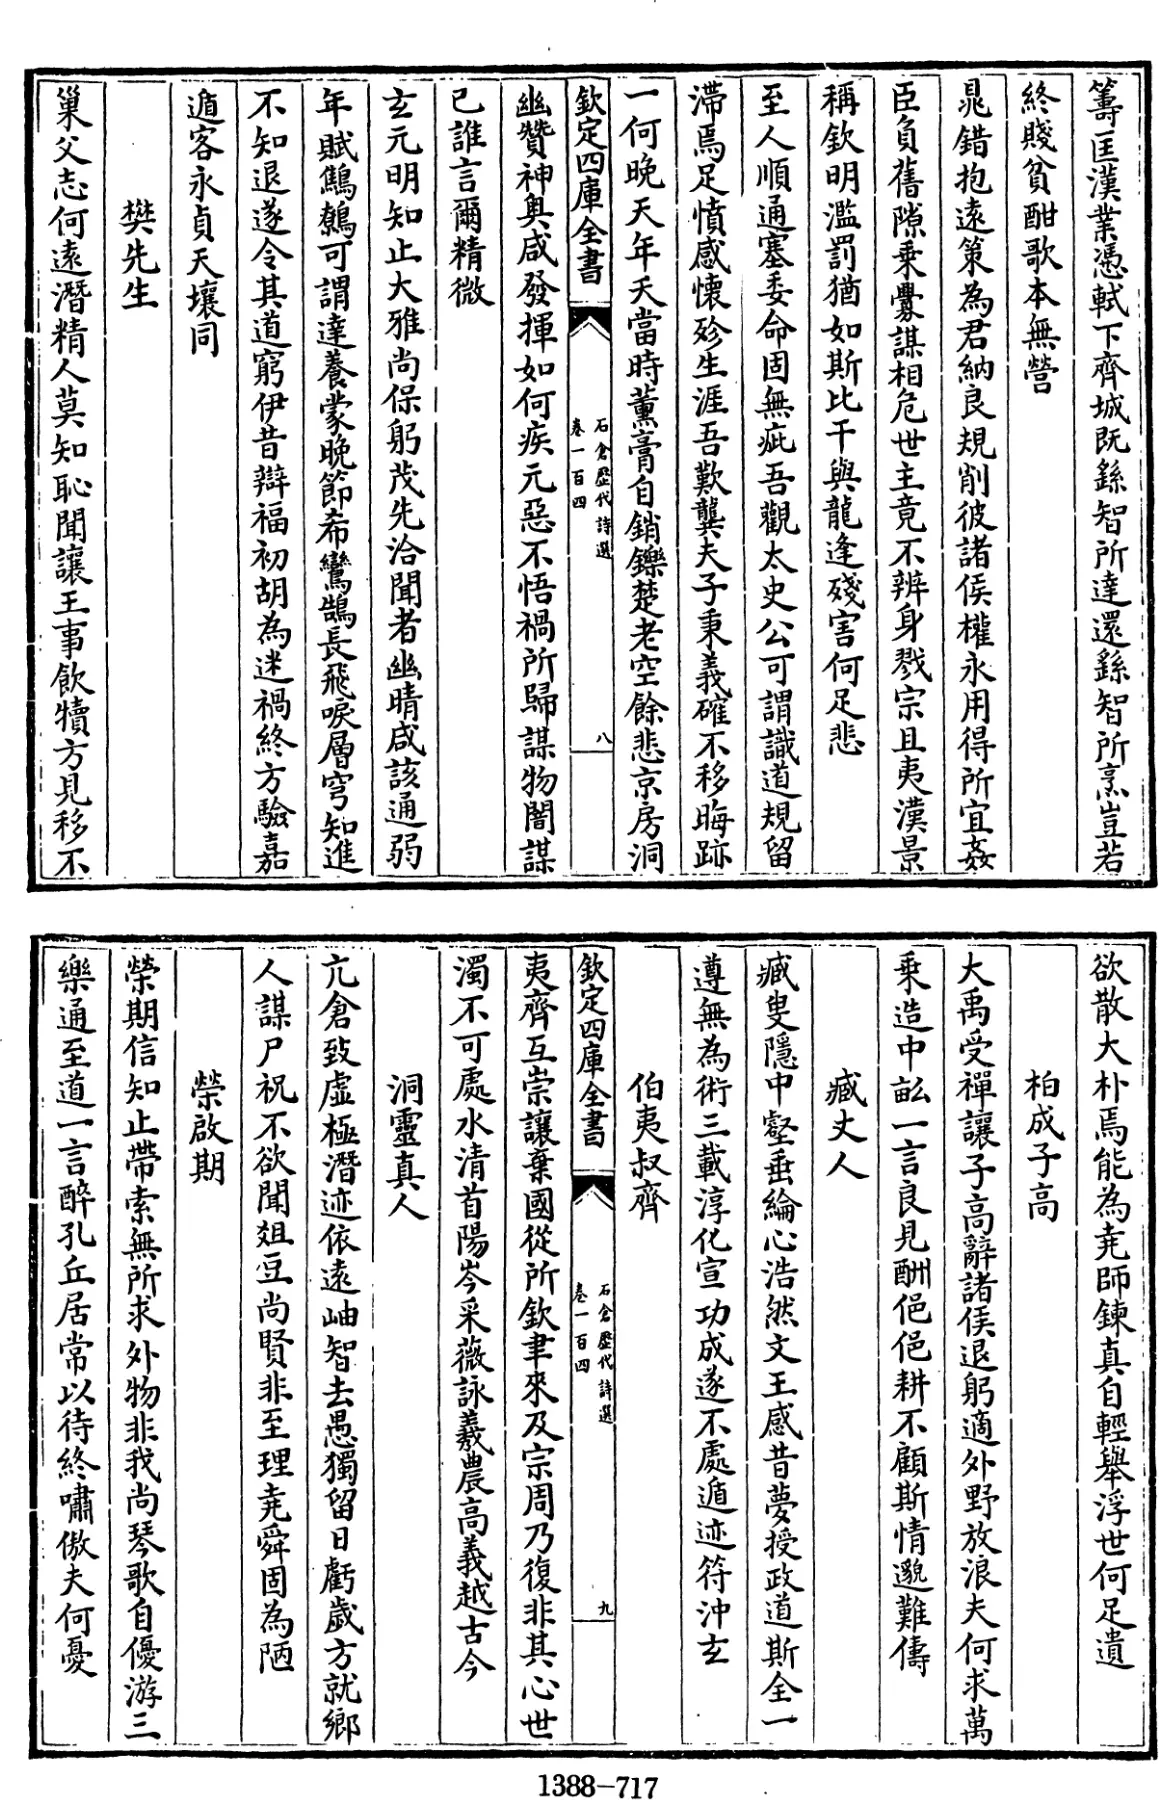 籌匡漢業憑軾下齊城既繇智所達還繇智所烹豈若
終賤貧酣歌本無營
鼂錯抱遠策為君納良規削彼諸侯權永用得所宜姦
臣負舊隙乘釁謀相危世主竟不辨身戮宗且夷漢景
稱欽明濫罰猶如斯比干與龍逢殘害何足悲
至人順通塞委命固無疵吾觀太史公可謂識道規留
滯焉足憤感懷殄生涯吾歎龔夫子秉義確不移晦跡
一何晚天年夭當時薰膏自銷鑠楚老空餘悲京房洞
欽定四庫全書
石倉歷代詩選
卷一百四
八
幽贊神奥咸發揮如何疾元惡不悟禍所歸謀物闇謀
已誰言爾精微
玄元明知止大雅尚保躬茂先洽聞者幽晴咸該通弱
年賦鷦鷯可謂達養蒙晚節希鸞鵠長飛唳層穹知進
不知退遂令其道窮伊昔辯福初胡為迷禍終方驗嘉
遁客永貞天壤同
樊先生
巢父志何遠潛精人莫知恥聞讓王事飲犢方見移不
欲散大朴焉能為堯師鍊真自輕舉浮世何足遺
柏成子高
大禹受禪讓子高辭諸侯退躬適外野放浪夫何求萬
乘造中畝一言良見酬俋俋耕不顧斯情邈難儔
臧丈人
臧叟隱中壑垂綸心浩然文王感昔夢授政道斯全一
遵無為術三載淳化宣功成遂不處遁迹符沖玄
伯夷叔齊
欽定四庫全書
石倉歷代詩選
卷一百四
九
夷齊互崇讓棄國從所欽聿來及宗周乃復非其心世
濁不可處水清首陽岑采薇詠羲農高義越古今
洞靈真人
亢倉致虛極潛迹依遠岫智去愚獨留日虧歲方就鄉
人謀尸祝不欲聞俎豆尚賢非至理堯舜固為陋
榮啟期
榮期信知止帶索無所求外物非我尚琴歌自優游三
樂通至道一言醉孔丘居常以待終嘯傲夫何憂
1388-717